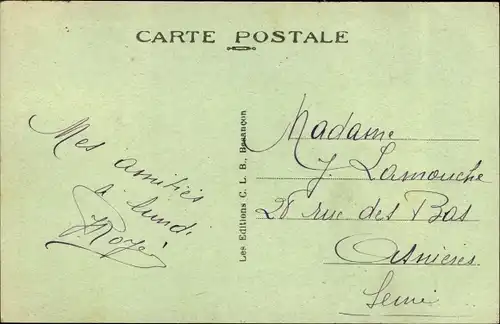 CARTE POSTALE
Mes amitiés
à lundi
Royer
Les Editions C. L. B., Besançon
Madame
J. Lamouche
28 rue des Bas
Asnières
Seine